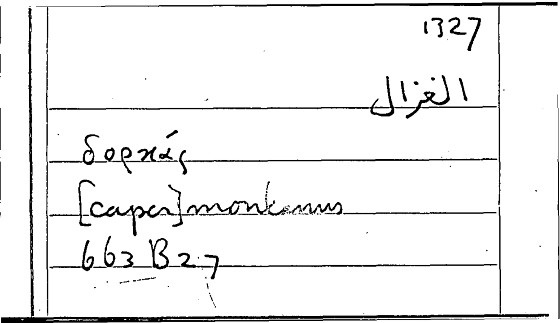 1327
الغزال
δορκάς
[caper] montanus
663 B27